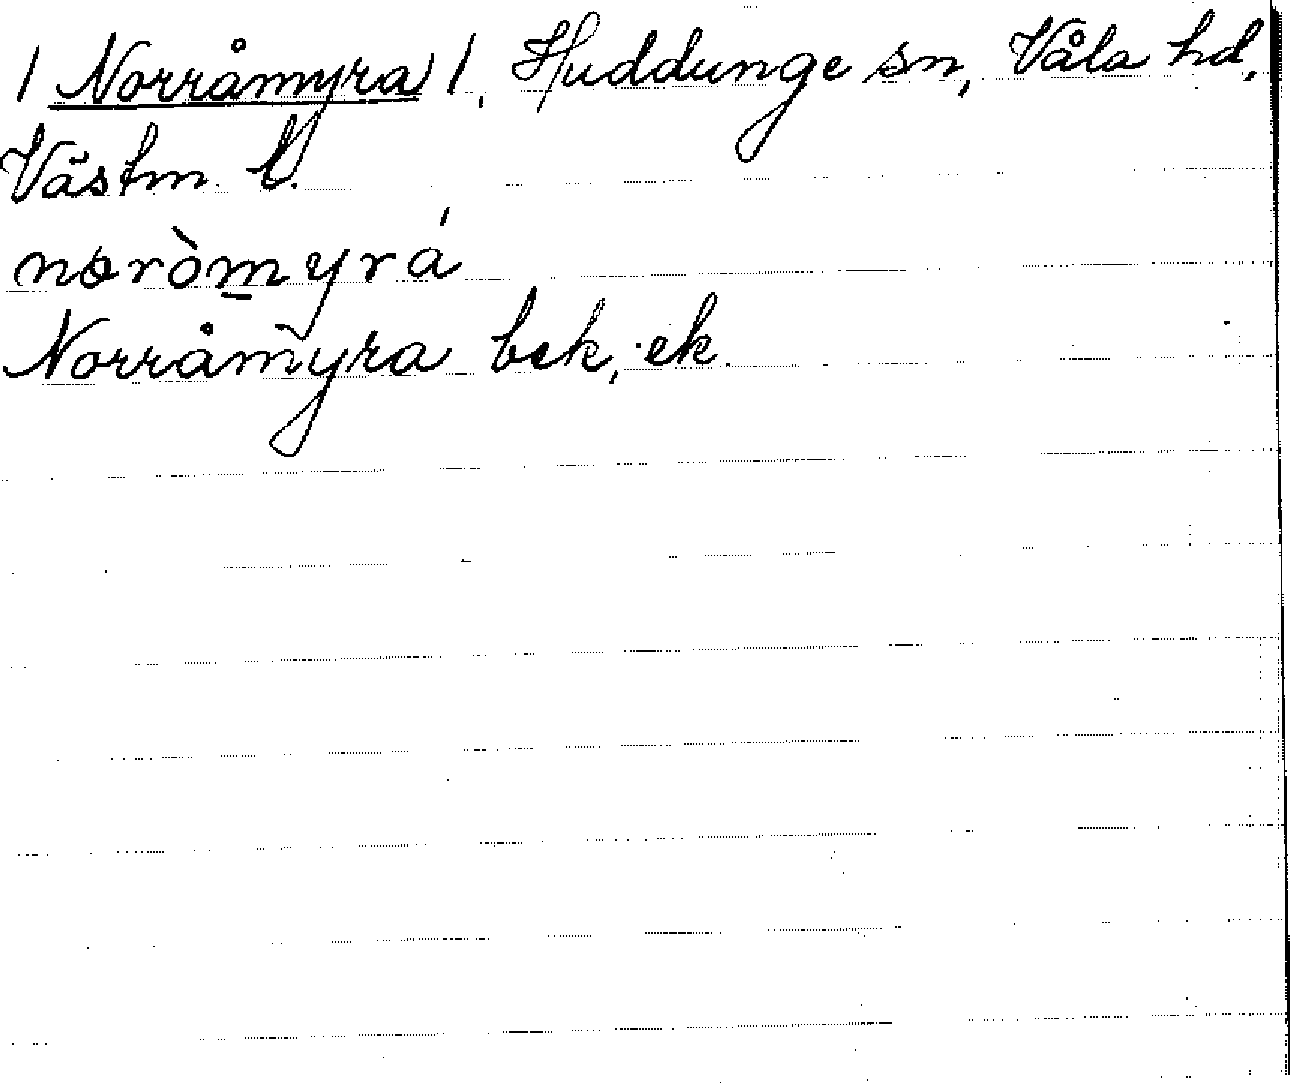 / Norråmyra /, Huddunge sn, Våla hd,
Västm. l.
noròmyrá
Norråmyra bek, ek.